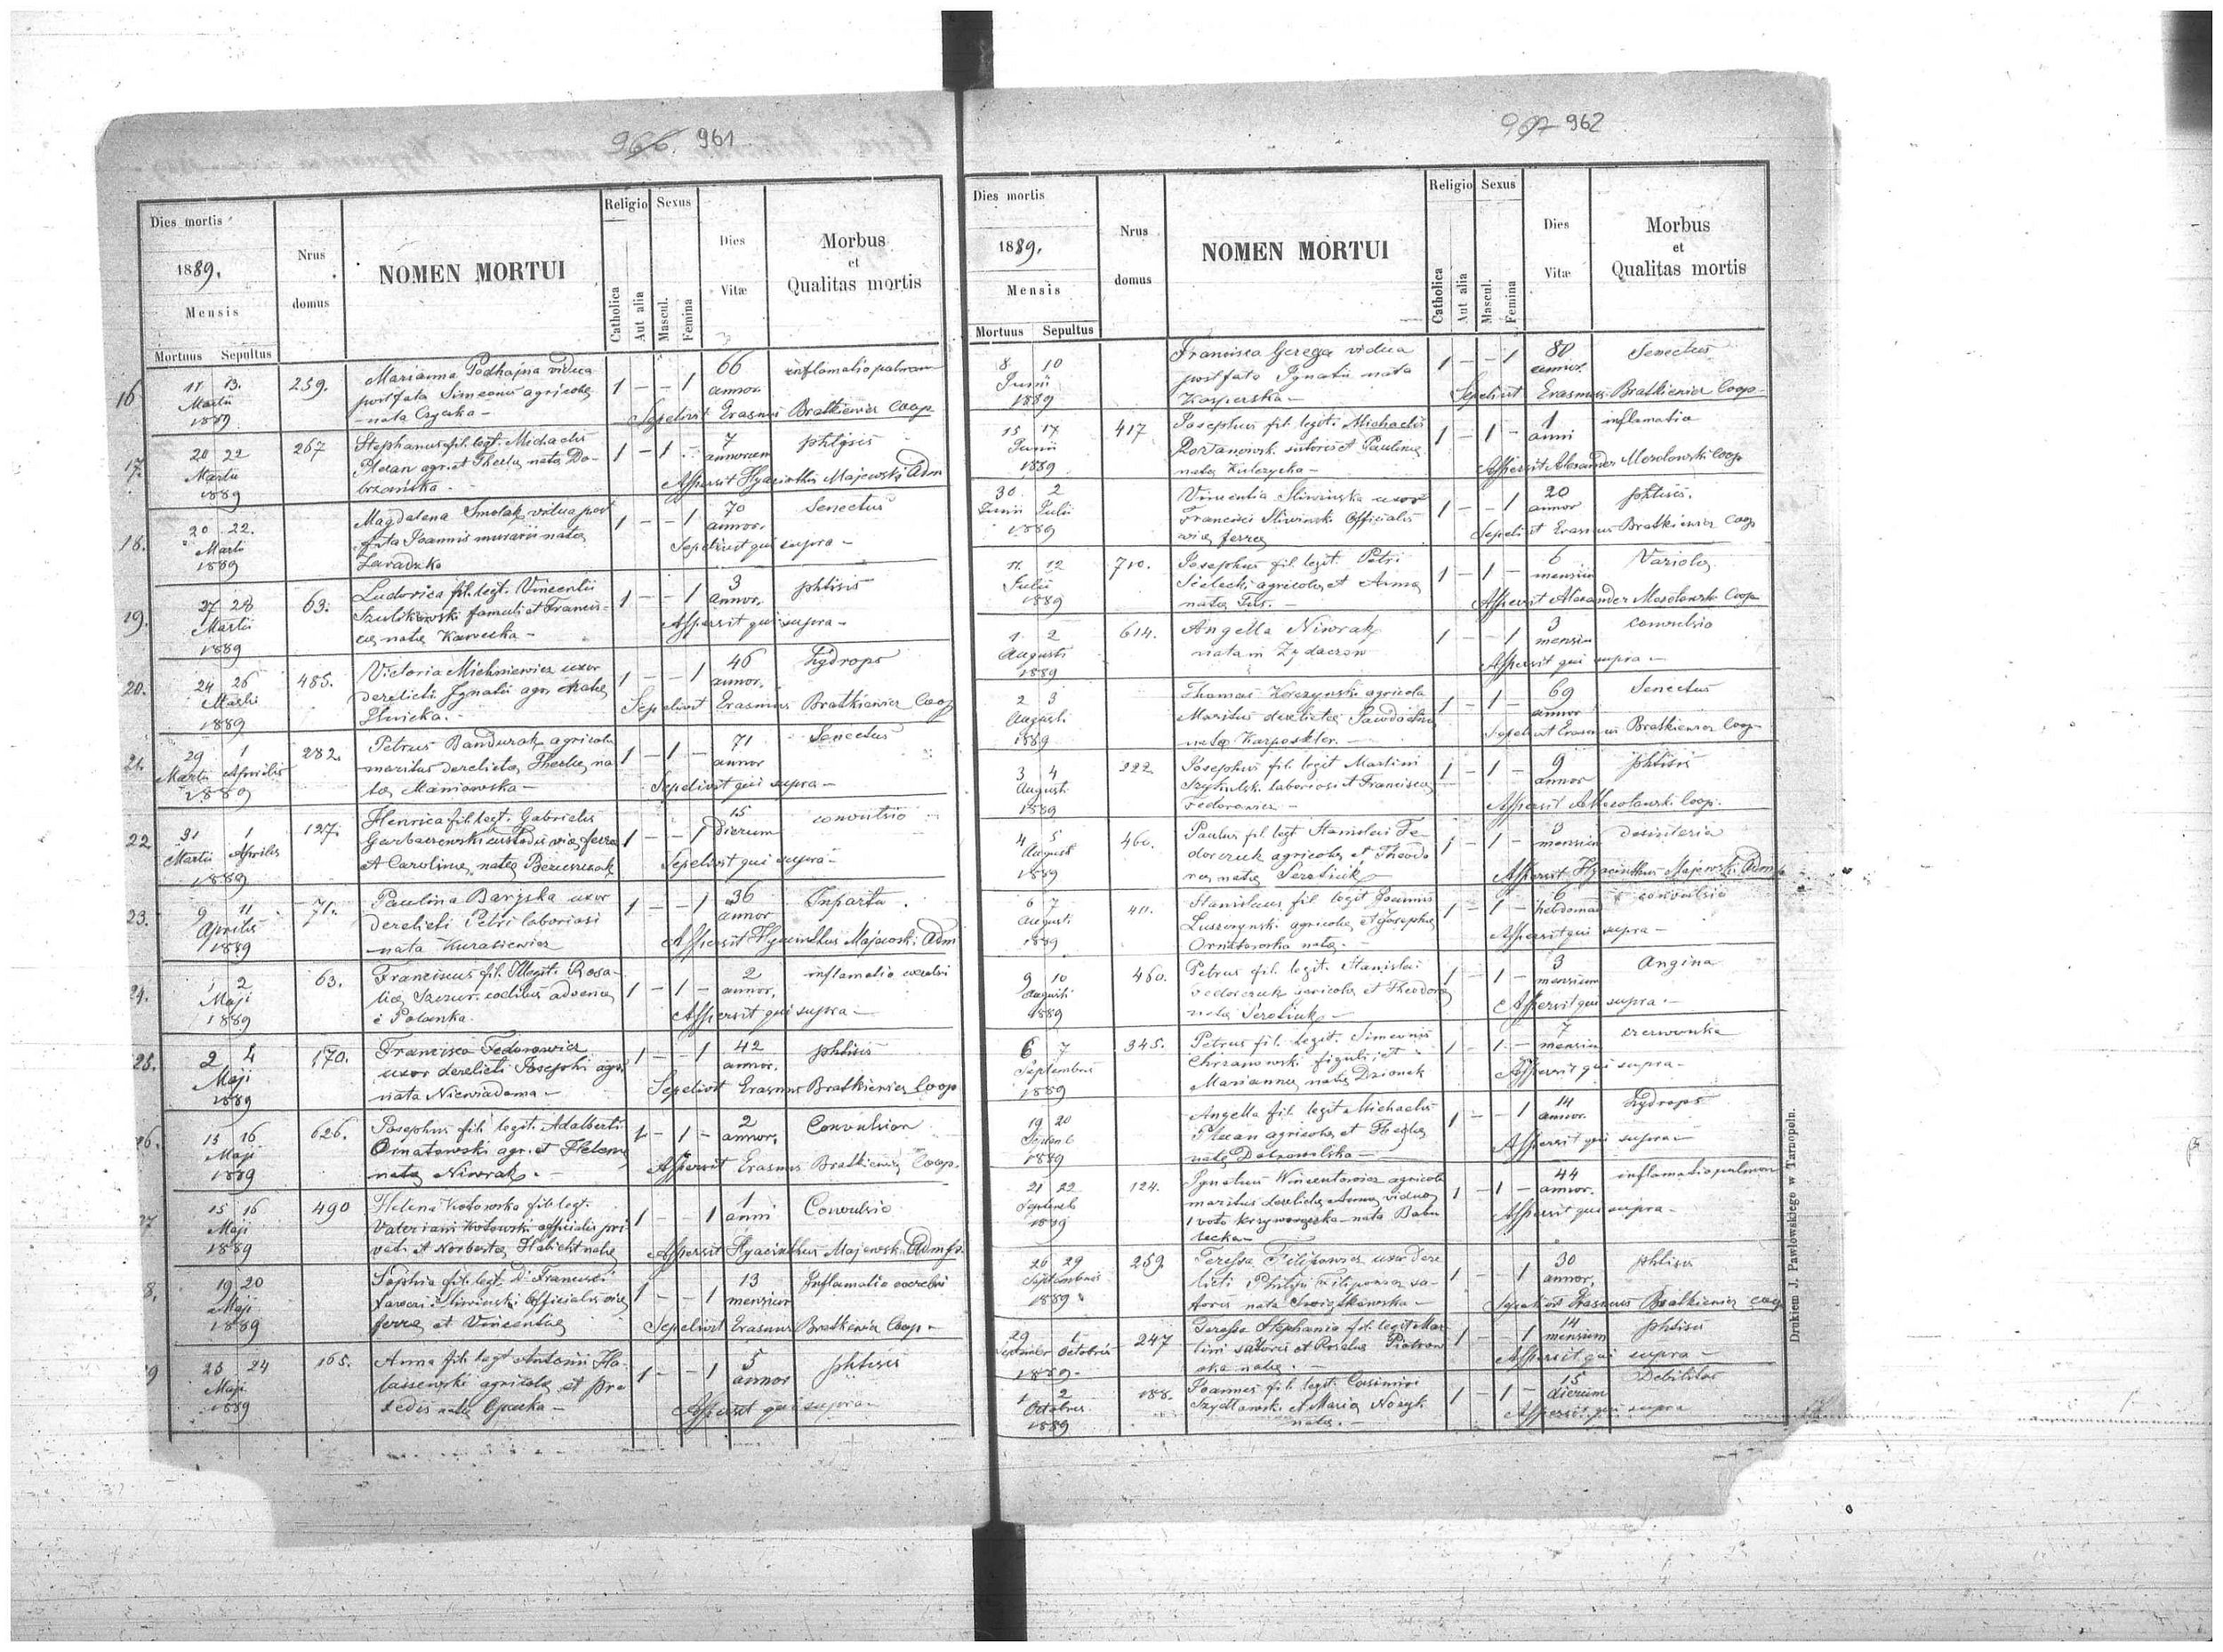 966. 961
Dies mortis
1889.
Mensis
Mortuus Sepultus
Nrus
domus
NOMEN MORTUI
Religio
Catholica
Aut alia
Sexus
Mascul.
Femina
Dies
Vitæ
Morbus
et
Qualitas mortis
16 11 13. 259. Marianna Podhajna vidua 1 — — 1 66 inflamatio pulmon
Martii post fata Simeonis agricolę annor.
1889 nata Sepelivit Erasmus Bratkiewicz Coop
17. 20 22 267 Stephanus fil. legt. Michaelis 1 — 1 - 7 phtysis
Martii agr. et Theclę natę Do- annorum
1889 brzańska. Aspersit Hyacinthus Majewski Adm
18. 20 22. Magdalena Smolak vidua post 1 — — 1 70 Senectus
Martii fata Joannis murarii nata annor.
1889 Zawadzka Sepelivit qui supra —
19. 27 28 63. Ludovica fil. legt. Vincentii 1 — — 1 3 phtisis
Martii famuli et Francis- annor.
1889 cę natę Aspersit qui supra —
20. 24 26 485. Victoria Michniewicz uxor 1 — — 1 46 Hydrops
Martii derelicti Ignatii agr. nata annor.
1889 Sepelivit Erasmus Bratkiewicz Coop
21. 29 1 282. Petrus Bandurak agricola 1 — 1 — 71 Senectus
Martii Aprilis maritus derelictę Theclę na annor
1889 tę Maniowska — Sepelivit qui supra —
22 31 1 127. Henrica fil. legt. Gabrielis 1 — — 1 15 convulsio
Martii Aprilis Garbaczewski custodis vię ferreę Dierum
1889 et Carolinę natę Sepelivit qui supra —
23. 9 11 71. Paulina Baryska uxor 1 — — 1 36 In partu.
Aprilis derelicti Petri laboriosi annor
1889 nata Kurasiewicz Aspersit Hyacinthus Majewski Adm
24. 1 2 63. Franciscus fil. Illegit. Rosa- 1 — 1 — 2 inflamatio
Maji lię annor.
1889 Aspersit qui supra —
25. 2 4 170. Francisca Fedorowicz 1 — — 1 42 phtisis
Maji uxor derelicti Josephi agri annor.
1889 nata Niewiadoma — Sepelivit Erasmus Bratkiewicz Coop
26. 15 16 626. Josephus fil. legit. Adalberti 1 — 1 — 2 Convulsion
Maji Ornatowski agr. et Helenę annor.
1889 natę Niwrak. — Aspersit Erasmus Bratkiewicz Coop.
27 15 16 490 Helena Kotowska fil. legt. 1 — — 1 1 Convulsio
Maji Valeriani Kotowski officialis pri anni
1889 vati et Norbertę Habicht natę Aspersit Hyacinthus Majewski Admr.
8. 19 20 Sophia fil. legt. Francisci 1 — — 1 13 Inflamatio
Maji Sliwinski Officialis vię mensium
1889 ferreę et Vincentię Sepelivit Erasmus Bratkiewicz Coop —
9 23 24 165. Anna fil. legt. Antonii Ha- 1 — — 1 5 phtisis
Maji agricolę et annor
1889 natę Aspersit qui supra
967 962
Dies mortis
1889.
Mensis
Mortuus Sepultus
Nrus
domus
NOMEN MORTUI
Religio
Catholica
Aut alia
Sexus
Mascul.
Femina
Dies
Vitæ
Morbus
et
Qualitas mortis
8 10 Francisca Gerega vidua 1 — — 1 80 Senectus
Junii post fata Ignatii nata annor.
1889 Kasperska — Sepelivit Erasmus Bratkiewicz Coop —
15 17 417 Josephus fil. legit. Michaelis 1 — 1 — 1 inflamatia
Junii sutoris et Paulinę anni
1889 natę Kulczycka — Aspersit Alexander Mosolowski Coop
30. 2 Vincentia Sliwinska uxor 1 — — 1 20 phtisis.
Junii Julii Francisci Sliwinski Officialis annor
1889 vię ferreę Sepelivit Erasmus Bratkiewicz Coop
11. 12 710. Josephus fil. legit. Petri 1 — 1 — 6 Variola
Julii Sielecki agricolę et Anna mensium
1889 natę — Aspersit Alexander Mosolowski Coop
1. 2 614. Angella Niwrak 1 — — 1 3 convulsio
Augusti nata in Zydaczow mensium
1889 Aspersit qui supra —
2 3 Thomas Korczynski agricola 1 — 1 — 69 Senectus
Augusti Maritus derelictę annor
1889 natę — Sepelivit Erasmus Bratkiewicz Coop —
3 4 222 Josephus fil. legit Martini 1 — 1 — 9 phtisis
Augusti laboriosi et Francisca annor
1889 Fedorowicz — Aspersit A Mosolowski Coop.
4 5 460. Paulus fil. legt Stanislai Fe- 1 — 1 — mensium
Augusti dorczuk agricolę et Theodo
1889 rę natę Aspersit Hyacinthus Majewski Admr
6 7 411. Stanislaus fil legit Joannis 1 — 1 — 6 convulsio
Augusti Luszczynski agricolę et Josephę hebdomad
1889 Ornatowska natę. — Aspersit qui supra —
9 10 460. Petrus fil. legit. Stanislai 1 — 1 — 3 Angina
Augusti Fedorczuk agricolę et Theodorę mensium
1889 natę Aspersit qui supra. —
6 7 345. Petrus fil. legit. Simeonis 1 — 1 — 7 czerwonka
Septembris Chrzanowski figuli et mensium
1889 Mariannę natę Dzionek Aspersit qui supra —
19 20 Angella fil. legit Michaelis 1 — — 1 14 Hydrops
Septemb agricolę et Theclę annor.
1889 natę — Aspersit qui supra —
21 22 124. Ignatius Wincentowicz agricola 1 — 1 — 44 inflamatio pulmon
Septemb maritus derelictę Annę viduę annor.
1889 1 voto nata Babu Aspersit qui supra —
lecka —
26 29 259. Teressa Filipowicz uxor dere 1 — — 1 30 phtisis
Septembris licti Philippi Filipowicz sa- annor.
1889 toris nata — Sepelivit Erasmus Bratkiewicz Coop
29 1 247 Teressa Stephania fil. legit Mar 1 — — 1 14 phtisis
Septembr Octobris tini satoris et Rosalię Piotrow mensium
1889. ska natę. — Aspersit qui supra —
1 2 188. Joannes fil. legit. Casimiri 1 — 1 — 15 Debilitas
Octobris Szydlowski et Maria dierum
1889 natę. — Aspersit qui supra
Drukiem J. Pawłowskiego w Tarnopolu.